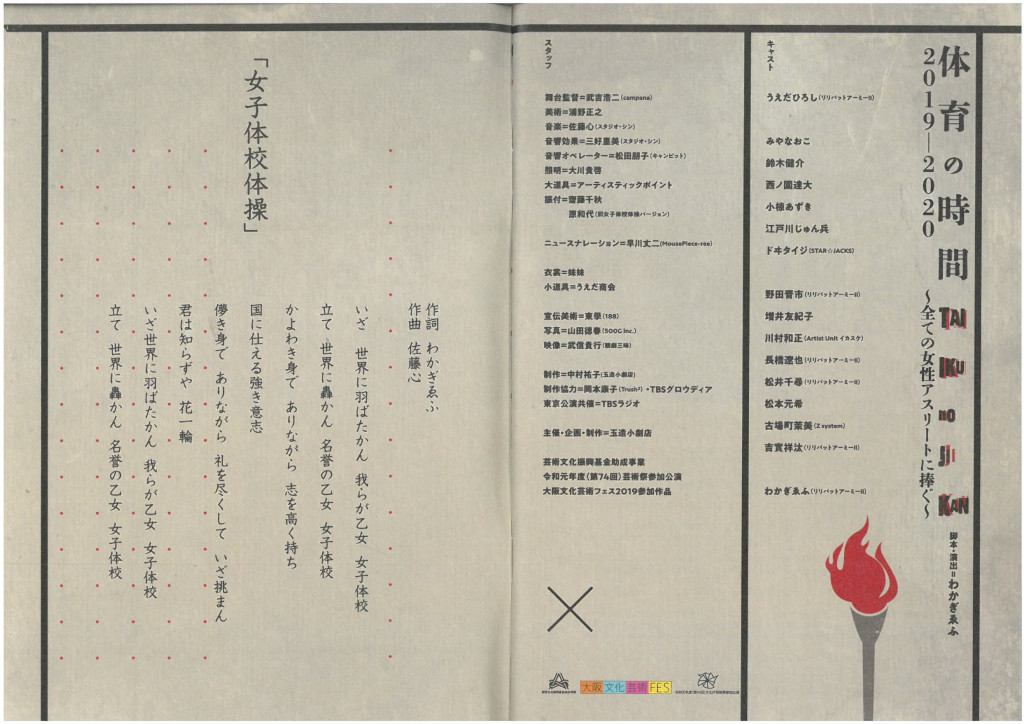 体育の時間
2019—2020
TAI
IKU
no
JI
KAN
～全ての女性アスリートに捧ぐ～
脚本・演出＝わかぎゑふ
キャスト
うえだひろし(リリパットアーミーII)
みやなおこ
鈴木健介
西ノ園達大
小椋あずき
江戸川じゅん兵
ドヰタイジ(STAR☆JACKS)
野田晋市(リリパットアーミーII)
増井友紀子
川村和正(Artist Unit イカスケ)
長橋遼也(リリパットアーミーII)
松井千尋(リリパットアーミーII)
松本元希
古場町茉美(Z system)
吉實祥汰(リリパットアーミーII)
わかぎゑふ(リリパットアーミーII)
スタッフ
舞台監督＝武吉浩二(campana)
美術＝浦野正之
音楽＝佐藤心(スタジオ・シン)
音響効果＝三好里美(スタジオ・シン)
音響オペレーター＝松田朋子(キャンビット)
照明＝大川貴啓
大道具＝アーティスティックポイント
振付＝齋藤千秋
原和代(前女子体校体操バージョン)
ニュースナレーション＝早川丈二(MousePiece-ree)
衣裳＝妹妹
小道具＝うえだ商会
宣伝美術＝東學(188)
写真＝山田徳春(500G Inc.)
映像＝武信貴行(観劇三昧)
制作＝中村祐子(玉造小劇店)
制作協力＝岡本康子(Trash²)・TBSグロウディア
東京公演共催＝TBSラジオ
主催・企画・制作＝玉造小劇店
芸術文化振興基金助成事業
令和元年度(第74回)芸術祭参加公演
大阪文化芸術フェス2019参加作品
大阪文化芸術FES
「女子体校体操」
作詞 わかぎゑふ
作曲 佐藤心
いざ 世界に羽ばたかん 我らが乙女 女子体校
立て 世界に轟かん 名誉の乙女 女子体校
かよわき身で ありながら 志を高く持ち
国に仕える強き意志
儚き身で ありながら 礼を尽くして いざ挑まん
君は知らずや 花一輪
いざ世界に羽ばたかん 我らが乙女 女子体校
立て 世界に轟かん 名誉の乙女 女子体校